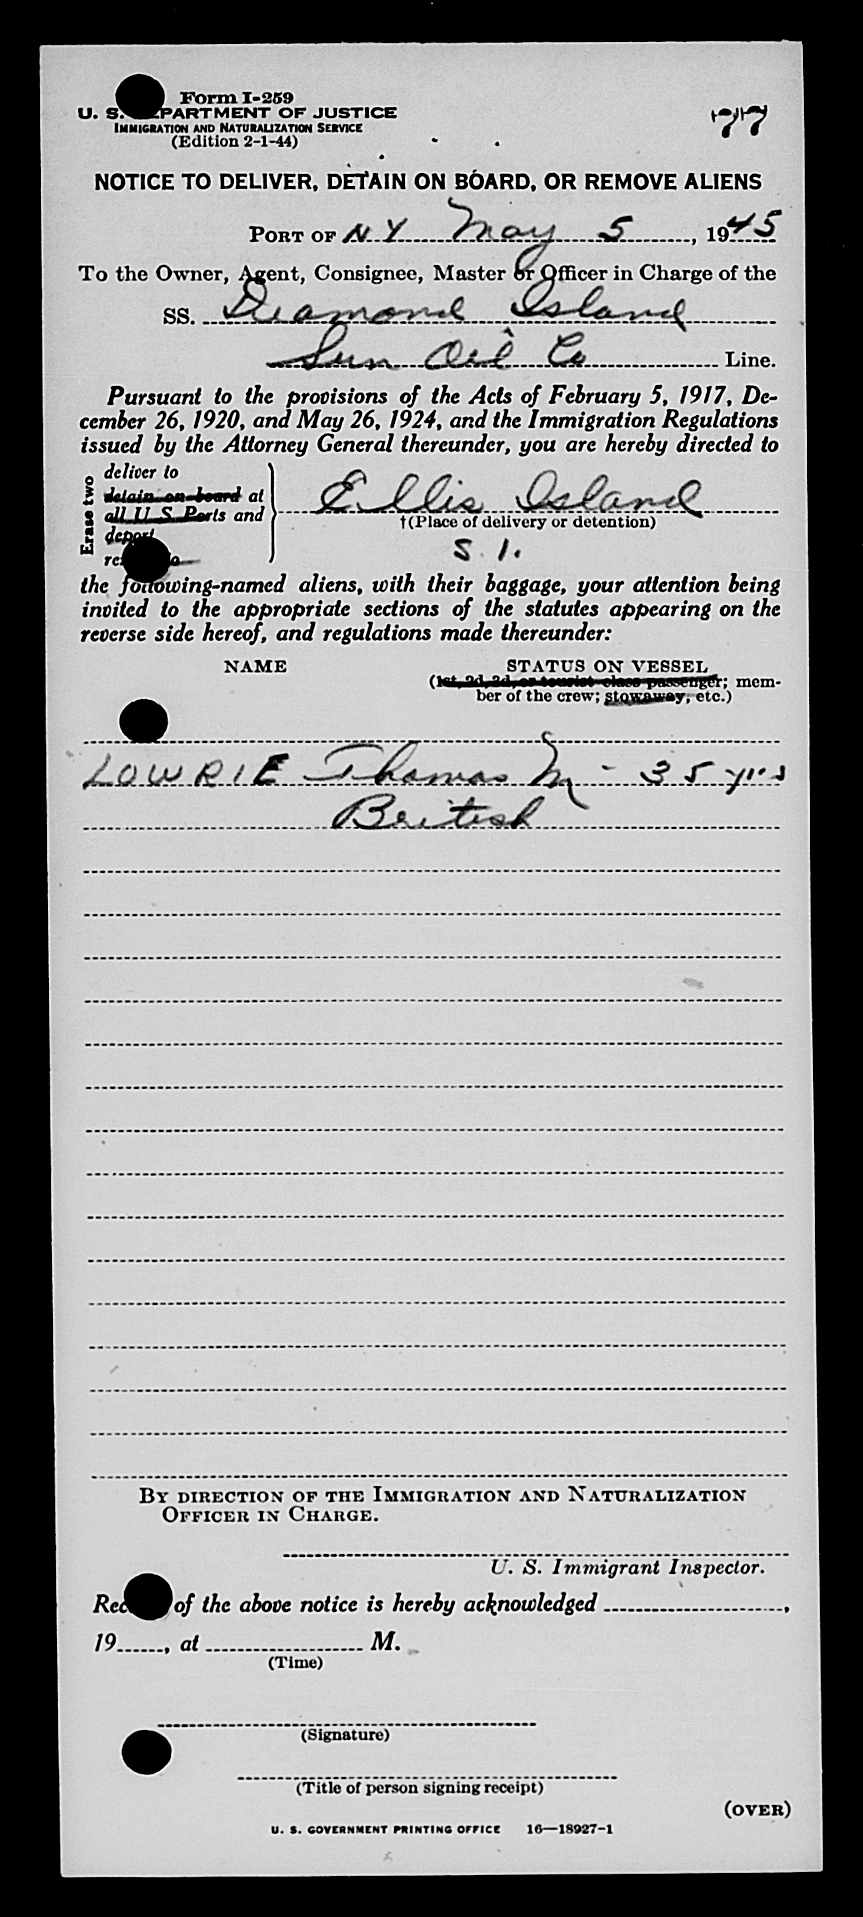 Form I-259
U. S. DEPARTMENT OF JUSTICE
IMMIGRATION AND NATURALIZATION SERVICE
(Edition 2-1-44)
77
NOTICE TO DELIVER, DETAIN ON BOARD, OR REMOVE ALIENS
PORT OF N Y May 5, 1945
To the Owner, Agent, Consignee, Master or Officer in Charge of the
SS. Diamond Island
Sun Oil Co Line.
Pursuant to the provisions of the Acts of February 5, 1917, De-
cember 26, 1920, and May 26, 1924, and the Immigration Regulations
issued by the Attorney General thereunder, you are hereby directed to
Erase two
deliver to
detain on board at
all U S Ports and
deport
Ellis Island
†(Place of delivery or detention)
S. I.
the following-named aliens, with their baggage, your attention being
invited to the appropriate sections of the statutes appearing on the
reverse side hereof, and regulations made thereunder:
NAME STATUS ON VESSEL
(1st, 2d, 3d, or tourist class passenger; mem-
ber of the crew; stowaway, etc.)
LOWRIE Thomas M - 35 yrs
British
BY DIRECTION OF THE IMMIGRATION AND NATURALIZATION
OFFICER IN CHARGE.
U. S. Immigrant Inspector.
of the above notice is hereby acknowledged ,
19 , at M.
(Time)
(Signature)
(Title of person signing receipt)
(OVER)
U. S. GOVERNMENT PRINTING OFFICE 16—18927-1